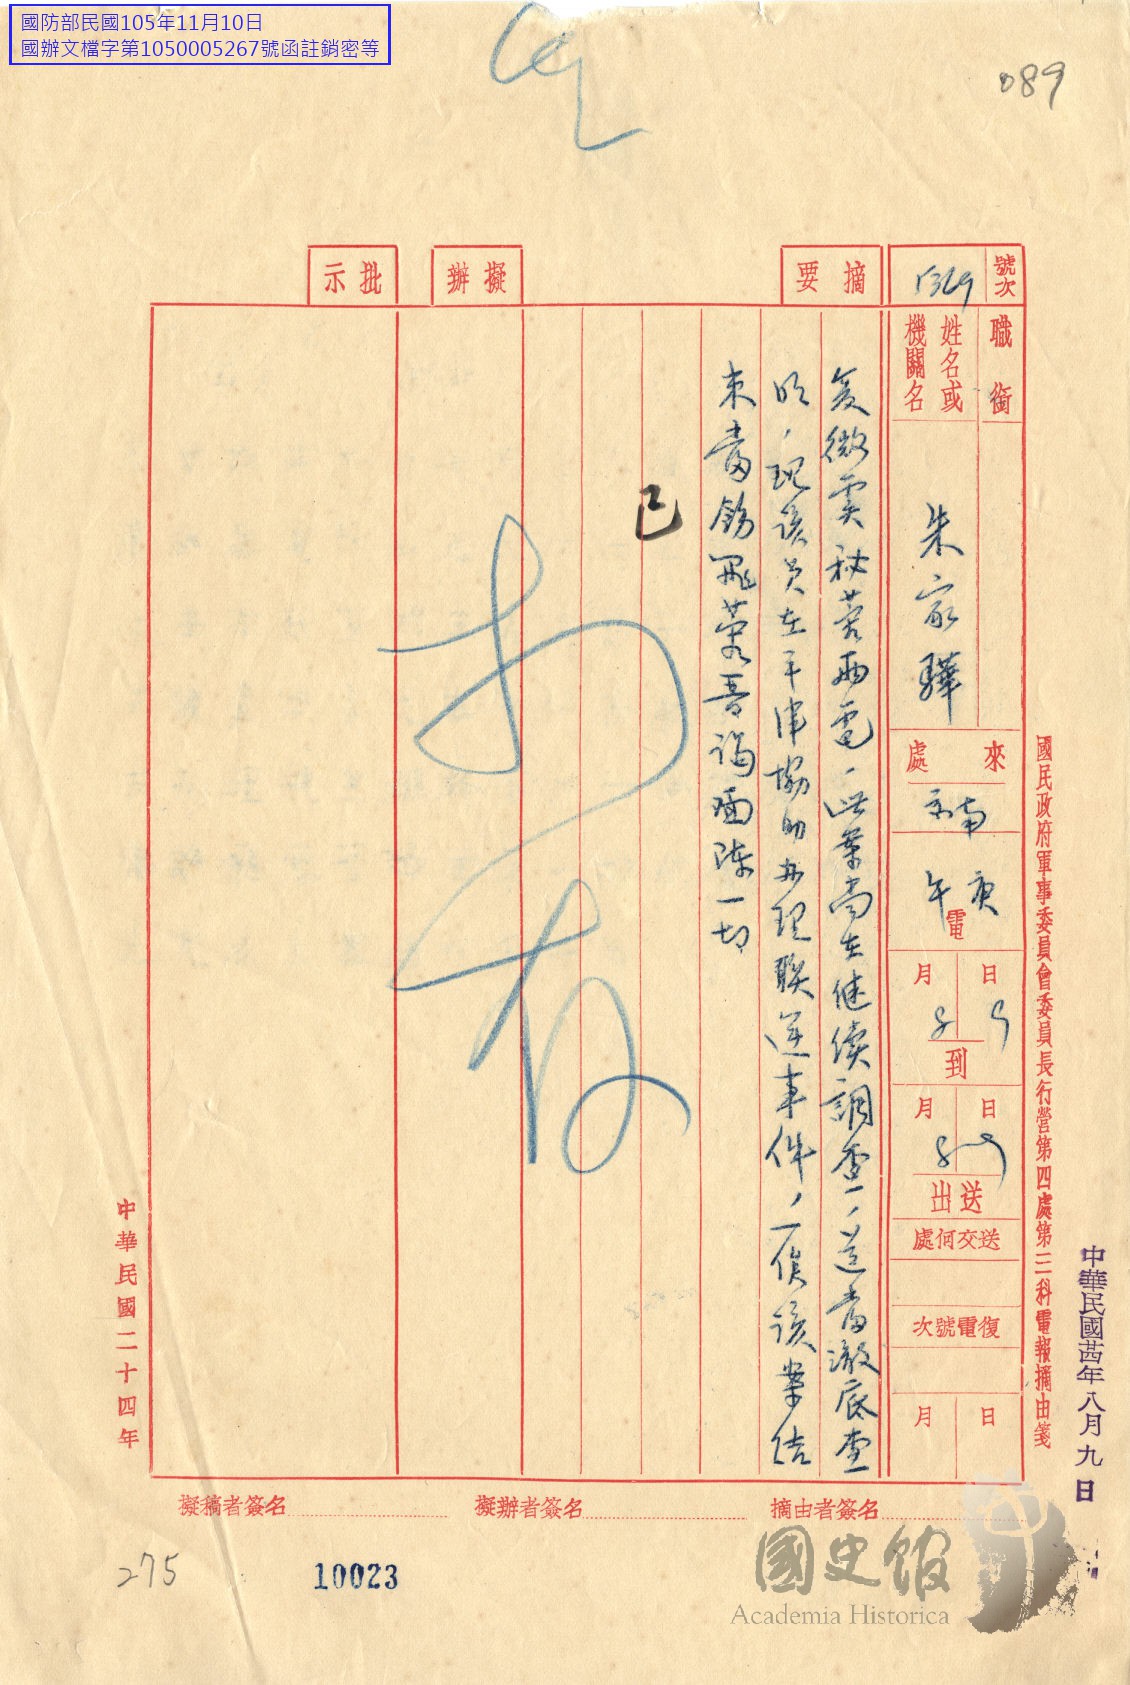 國防部民國105年11月10日
國辦文檔字第1050005267號函註銷密等
089
國民政府軍事委員會委員長行營第四處第三科電報摘由箋
中華民國廿四年八月九日
號次
職銜
姓名或
機關名
朱家驊
來處
南京
庚午電
月 日
8 9
到
月 日
8 9
送出
送交何處
復電號次
月 日
摘要
矣微電秘蓉兩電、此案尚在繼續調查、並當澈底查
明、現該員在平津協助办理聯運事件、一俟該案結
束當飭飛蓉晉謁面陳一切
擬辦
已
批示
中華民國二十四年
摘由者簽名
擬辦者簽名
擬稿者簽名
275
10023
國史館
Academia Historica